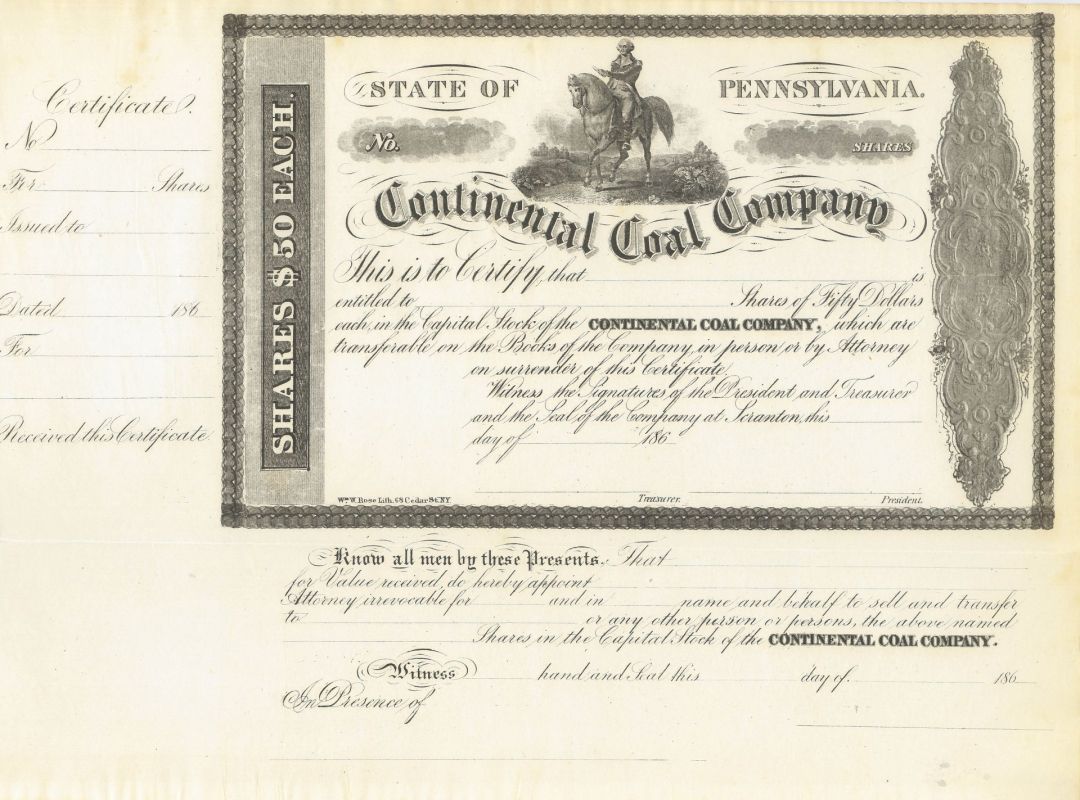 Certificate.
No
For Shares
Issued to
Dated 186
For
Received this Certificate
SHARES $50 EACH.
STATE OF PENNSYLVANIA.
No. SHARES
Continental Coal Company
This is to Certify, that is
entitled to Shares of Fifty Dollars
each, in the Capital Stock of the CONTINENTAL COAL COMPANY, which are
transferable on the Books of the Company, in person or by Attorney
on surrender of this Certificate.
Witness the Signatures of the President and Treasurer
and the Seal of the Company at Scranton, this
day of 186
Wm W. Rose Lith. 68 Cedar St. NY.
Treasurer. President.
Know all men by these Presents. That
for Value received, do hereby appoint
Attorney irrevocable for and in name and behalf to sell and transfer
to or any other person or persons, the above named
Shares in the Capital Stock of the CONTINENTAL COAL COMPANY.
Witness hand and Seal this day of. 186
In Presence of